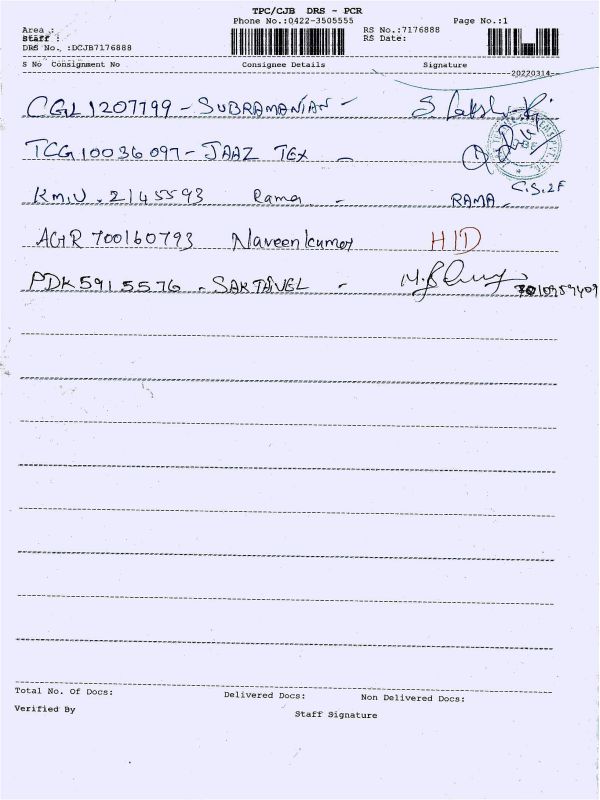 TPC/CJB DRS - PCR
Phone No.:0422-3505555 Page No.:1
Area : RS No.:7176888
Staff : RS Date:
DRS No. :DCJB7176888
S No Consignment No Consignee Details Signature
20220314
CGL1207799 - SUBRAMANIAN -
TCG10036097 - JAAZ TEX -
KMU. 2145593 Rama - RAMA - C.S.2F
AGR 700160793 Naveenkumar HID
PDK5915576 - SAKTAIVEL -
Total No. Of Docs: Delivered Docs: Non Delivered Docs:
Verified By Staff Signature